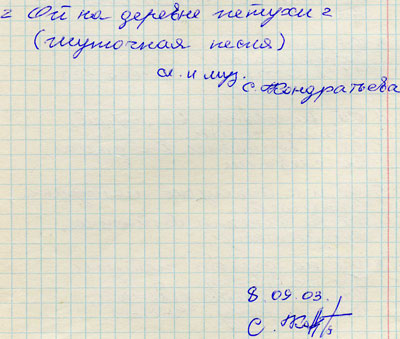 "Ой на деревне петухи"
(шуточная песня)
сл. и муз.
С. Кондратьева
8 09.03.
С.